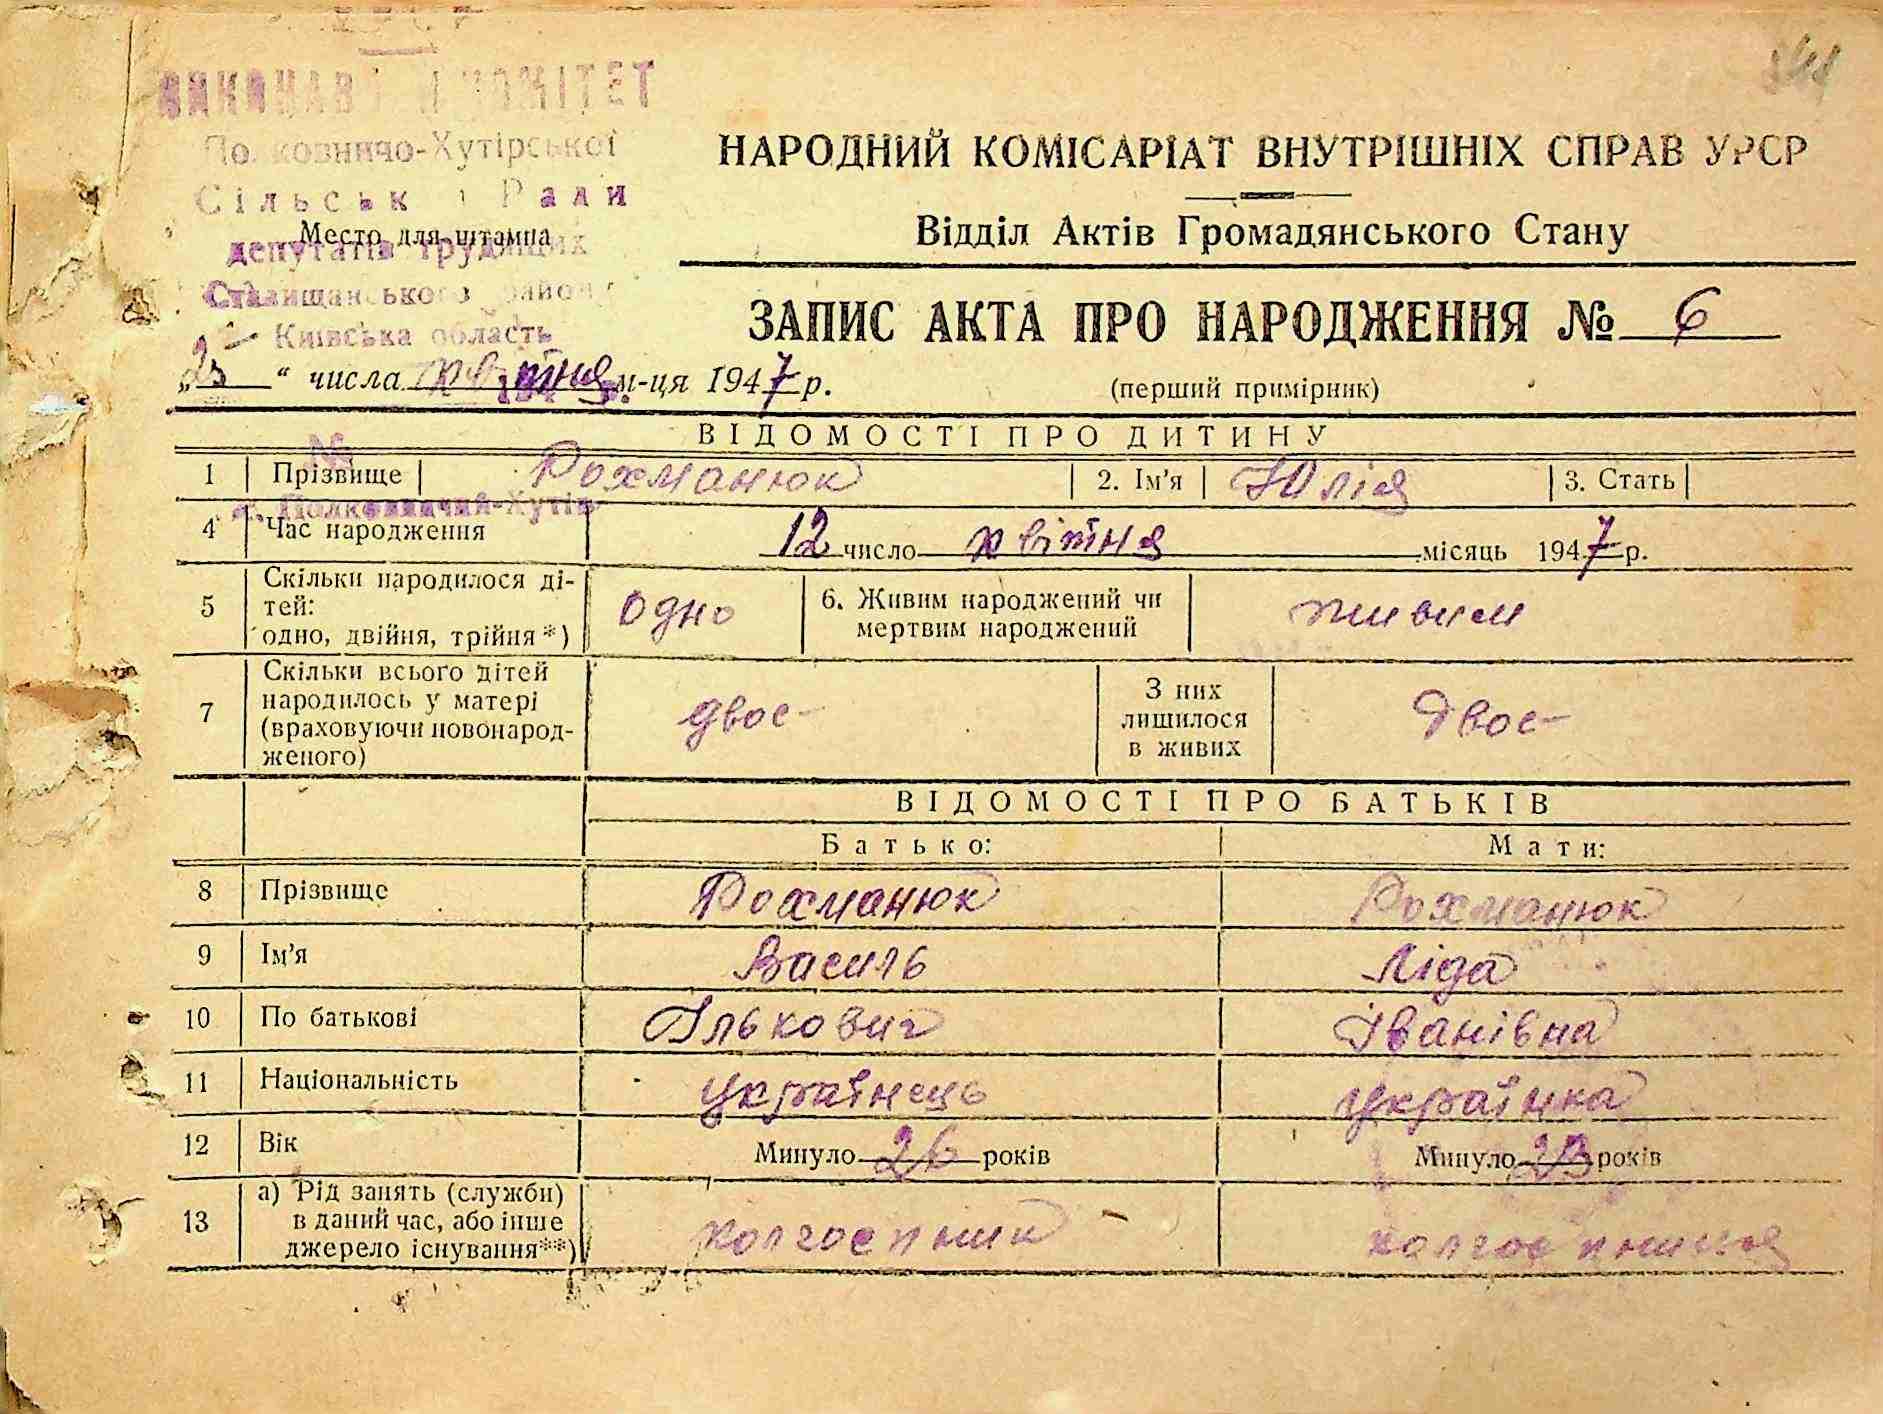 УРСР
ВИКОНАВЧИЙ КОМІТЕТ
Полковничо-Хутірської
Сільської Ради
депутатів трудящих
Ставищанського району
Київська область
Место для штампа
НАРОДНИЙ КОМІСАРІАТ ВНУТРІШНІХ СПРАВ УРСР
Відділ Актів Громадянського Стану
ЗАПИС АКТА ПРО НАРОДЖЕННЯ № 6
„23“ числа квітня м-ця 1947 р.
(перший примірник)
№
с. Полковничий-Хутір
ВІДОМОСТІ ПРО ДИТИНУ
1 Прізвище Рохманюк 2. Ім'я Юлія 3. Стать
4 Час народження 12 число квітня місяць 1947 р.
5 Скільки народилося ді-
тей:
одно, двійня, трійня*) одно
6. Живим народжений чи
мертвим народжений живим
7 Скільки всього дітей
народилось у матері
(враховуючи новонарод-
женого) двоє
З них
лишилося
в живих двоє
ВІДОМОСТІ ПРО БАТЬКІВ
Батько: Мати:
8 Прізвище Рохманюк Рохманюк
9 Ім'я Василь Ліда
10 По батькові Ількович Іванівна
11 Національність українець українка
12 Вік Минуло 26 років Минуло 23 років
13 а) Рід занять (служби)
в даний час, або інше
джерело існування**) колгоспник колгоспниця